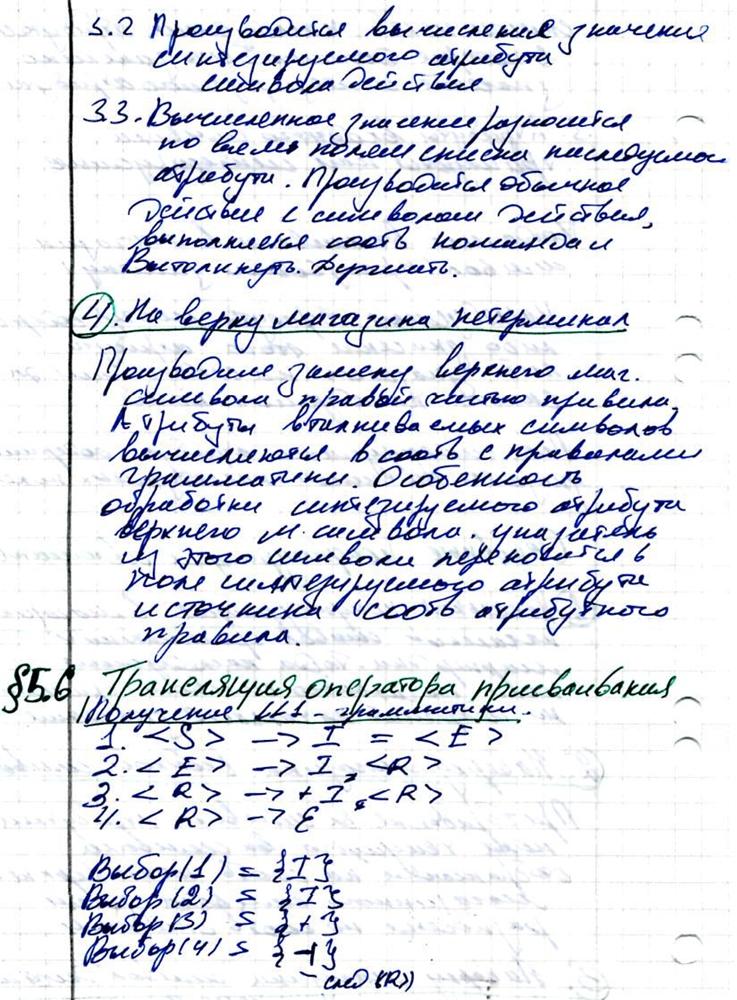 3.2 Производится вычисление значения
синтезируемого атрибута
символа действия
3.3. Вычисленное значение разносится
по всем полям списка наследуемого
атрибута. Производится обычное
действие с символом действия,
выполняется соотв команда и
Вытолкнуть. Держать.
4. На верху магазина нетерминал
Производим замену верхнего маг.
символа правой частью правила,
Атрибуты вталкиваемых символов
вычисляются в соотв с правилами
грамматики. Особенность
обработки синтезируемого атрибута
верхнего м. символа. указатель
из этого символа переносится в
поле синтезируемого атрибута
источника соотв атрибутного
правила.
§5.6 Трансляция оператора присваивания
Получение LL1 - грамматики.
1. <S> → I = <E>
2. <E> → I, <R>
3. <R> → + I, <R>
4. <R> → ε
Выбор(1) = {I}
Выбор(2) = {I}
Выбор(3) = {+}
Выбор(4) = {⊣}
след(<R>)